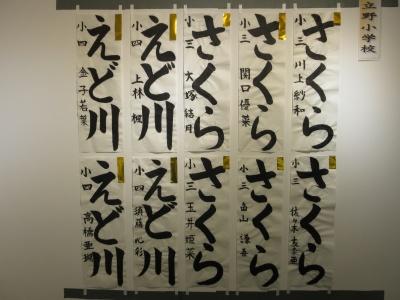 立野小学校
さくら
小三 川上紗和
さくら
小三 関口優菜
さくら
小三 大塚結月
えど川
小四 上林楓
えど川
小四 金子若葉
さくら
小三 佐々木友奈
さくら
小三 畠山謙吾
さくら
小三 玉井垣菜
えど川
小四 須藤心彩
えど川
小四 高橋亜瑚